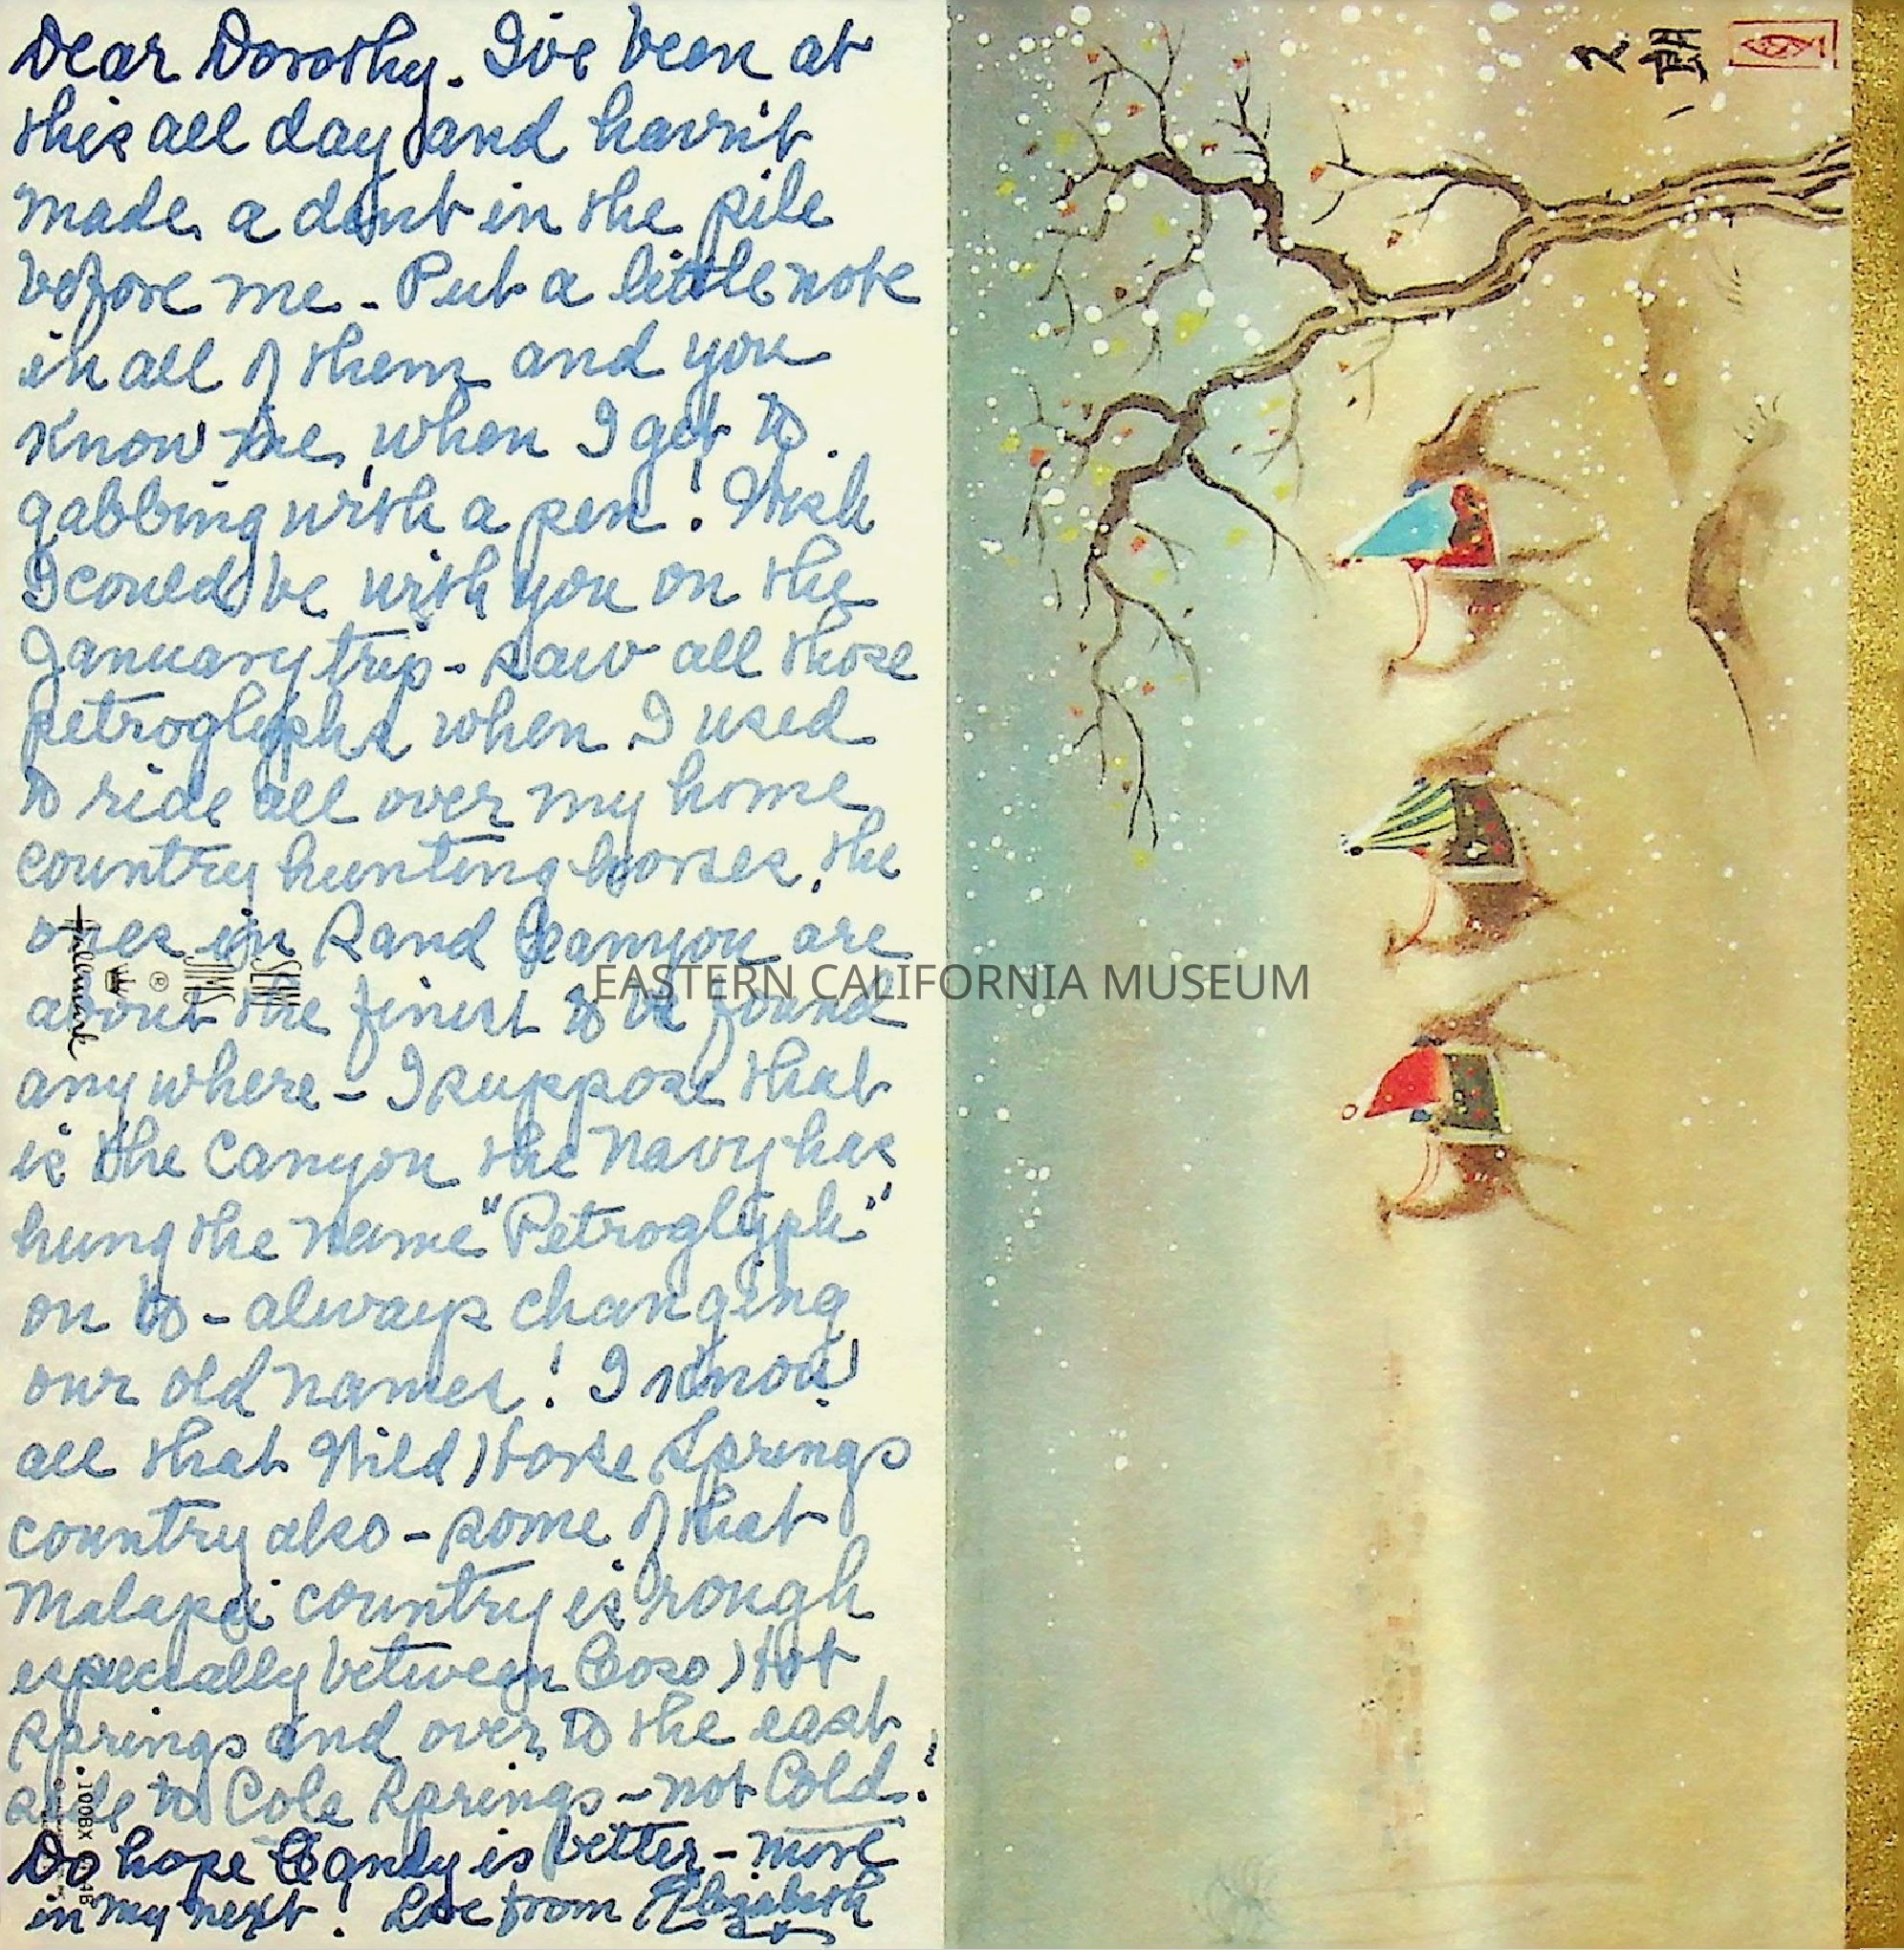 Dear Dorothy. I've been at
this all day and havn't
made a dent in the pile
before me - Put a little note
in all of them and you
know me, when I get to
gabbing with a pen! Wish
I could be with you on the
January trip - saw all those
petroglyphs when I used
to ride all over my home
country hunting horses, the
ones in Rand Canyon are
about the finest to be found
any where - I suppose that
is the Canyon the Navy has
hung the name "Petroglyph"
on to - always changing
our old names! I know
all that Wild Horse Springs
country also - some of that
Malapai country is rough
especially between Coso Hot
Springs and over to the east
side to Cole Springs - not Cold.
Do hope Candy is better - more
in my next! Love from Elizabeth
Hallmark
®
EASTERN CALIFORNIA MUSEUM